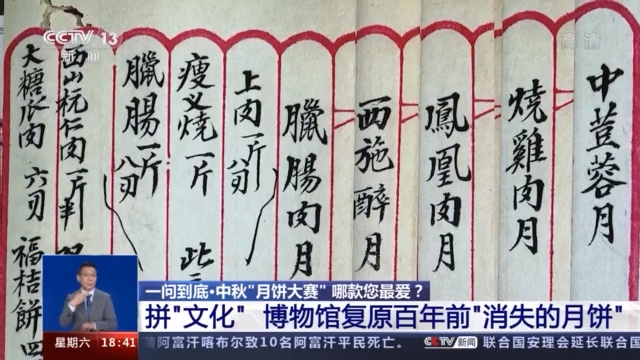 CCTV 13
新闻
高清
中荳蓉月
燒雞肉月
鳳凰肉月
西施醉月
臘腸肉月
上肉一斤八刃
瘦义燒一斤 此
臘腸一斤 八刃
西山杬仁肉一斤半
大糖瓜肉 六刃 福桔餅四
一问到底·中秋"月饼大赛" 哪款您最爱？
拼"文化" 博物馆复原百年前"消失的月饼"
星期六 18:41 袭阿富汗喀布尔致10名阿富汗平民死亡。 CCTV新闻 联合国安理会延长联合国